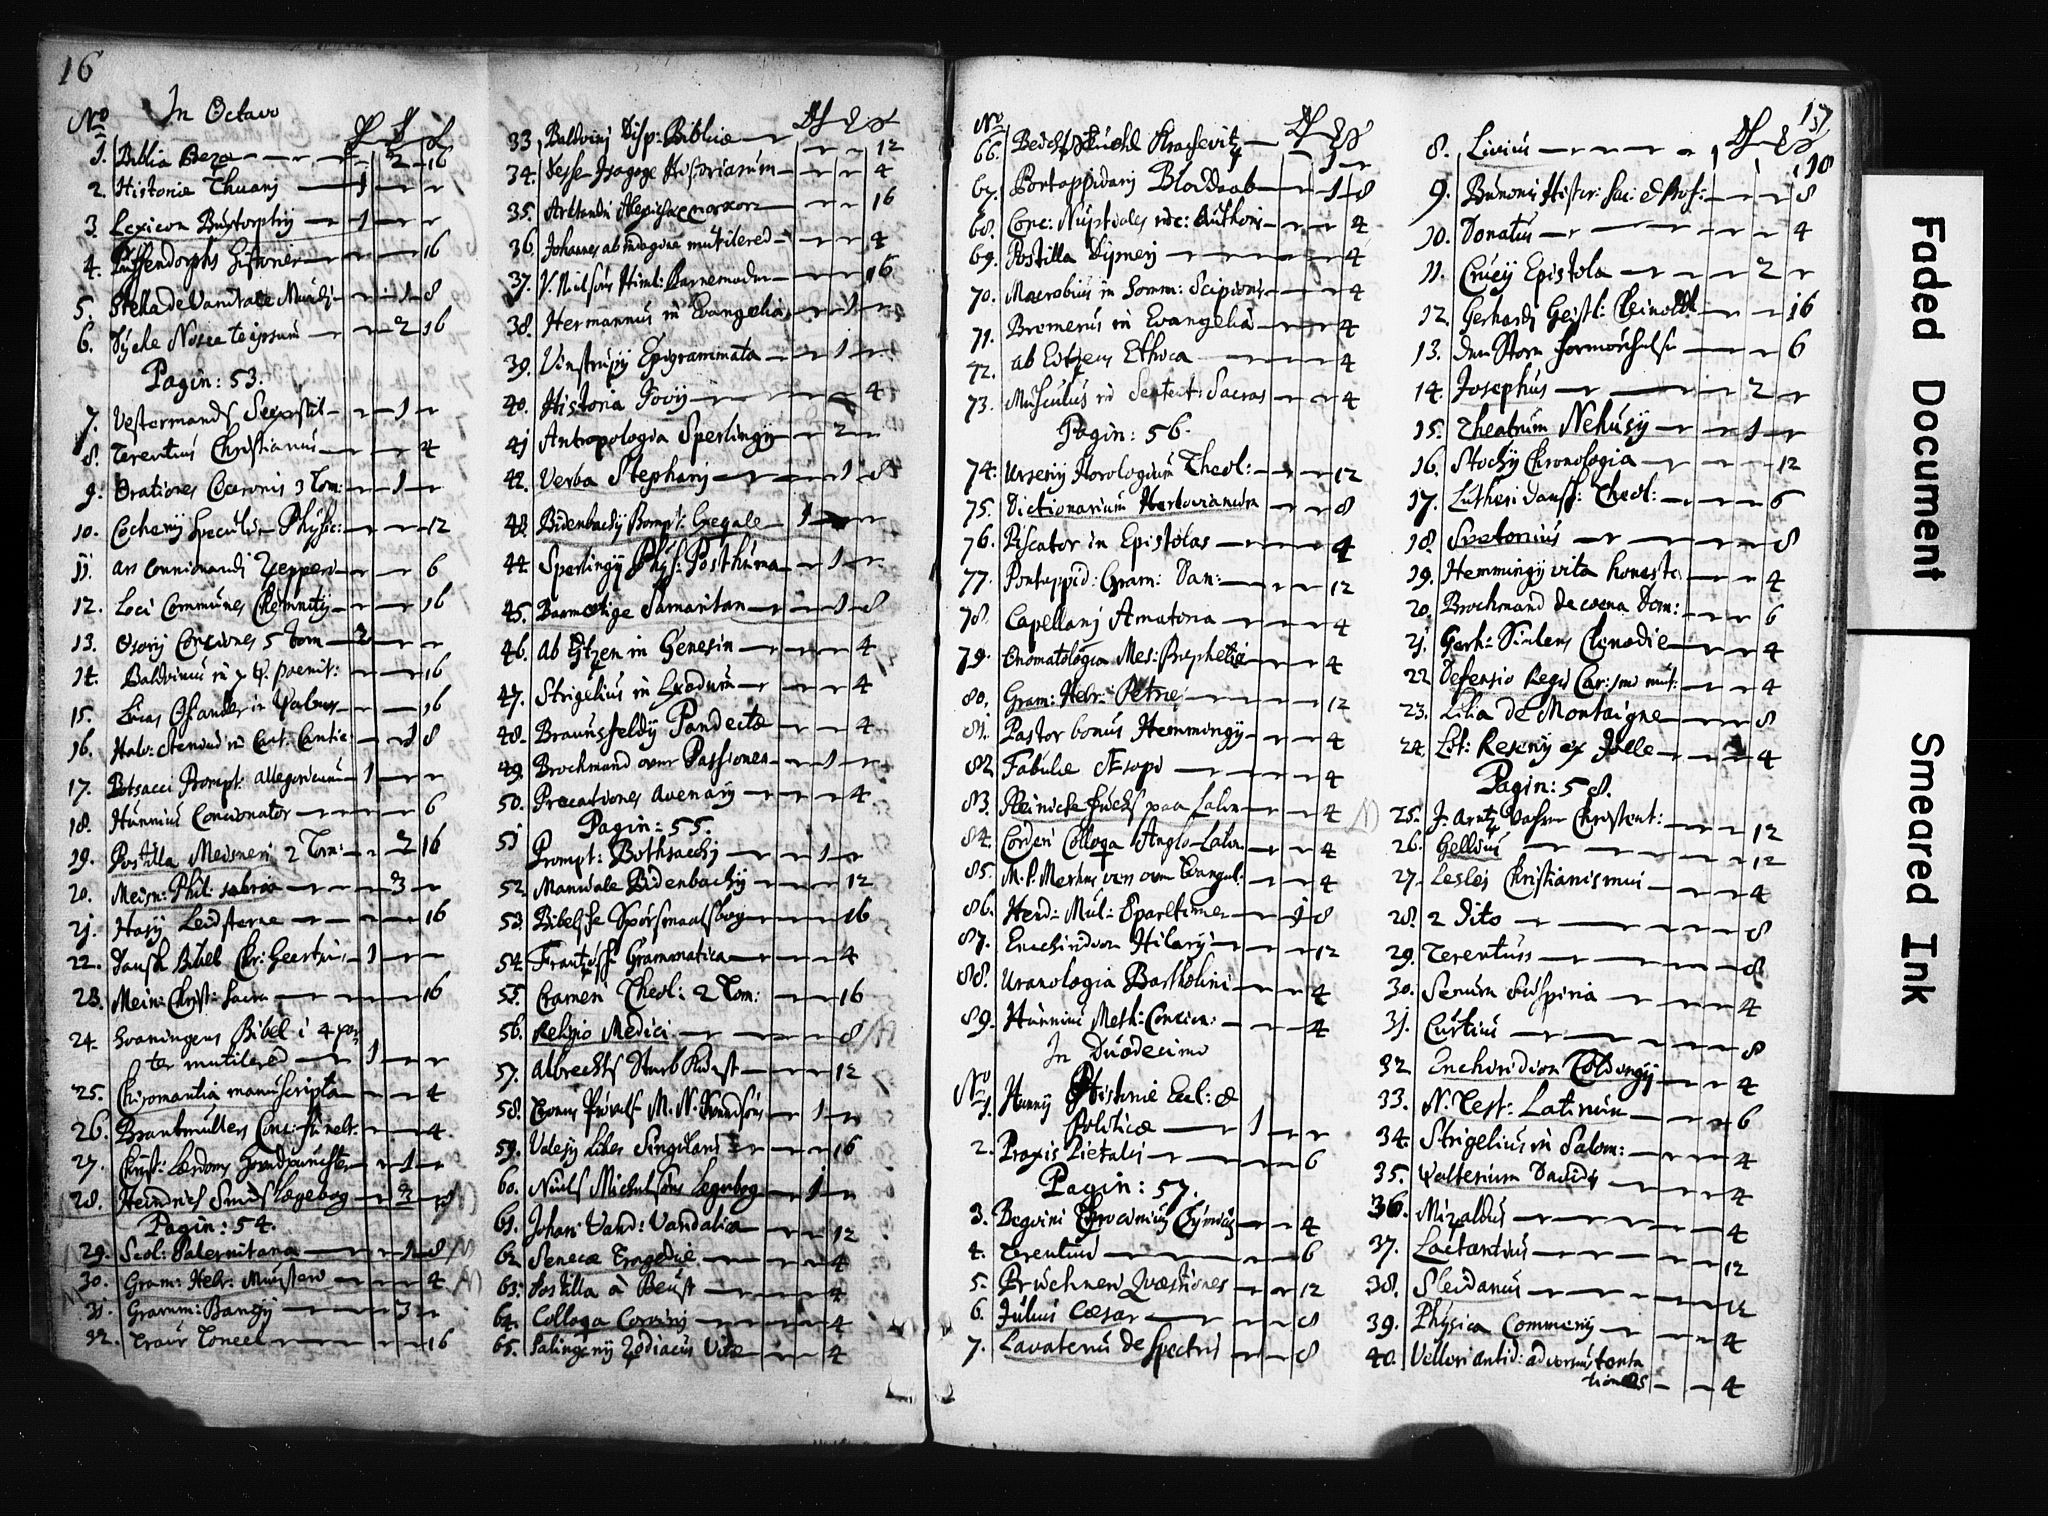 16
In Octavo
No
1. Biblia Bezæ 2 16
2. Historiæ Thuanj 1
3. Lexicon Buxtorphij 1
4. Puffendorphs Historier 16
5. Stella de Vanitate Mundj 1 8
6. Dÿcke Nosce te ipsum 2 16
Pagin: 53.
7. Vestermands 1
8. Terentius Christianus 4
9. Orationes Ciceronis 3 Tom: 1
10. Cochenij Specul: Physic: 12
11. Ars Concionandj Zepperi 6
12. Loci Communes Chemnitij 16
13. Osorij Conciones 5 Tom 2
14. Balduinus in poenit: 16
15. Lucas Osiander in 16
16. Cant. Cantic: 1 8
17. Botsacci Prompt: allegoricum 1
18. Hunnius Concionator 6
19. Postilla Meisneri 2 Tom: 2 16
20. Meisn: Phil: sobria 3
21. Hoÿj Leidsterne 16
22. Dansk Bibel 1
23. Mein: Christ: Sacra 16
24. Svaningens Bibel i 4 par
ter mutilered 1
25. Chiromantia manuscripta 4
26. Brantmüllers Conc: funebr: 4
27. Christ: Lærdoms Hovedpuncter 1
28. Heindrich Smids Lægebog 3
Pagin: 54.
29. Scol: Salernitana 1 8
30. Gram: Hebr: Munsteri 4
31. Gramm: Bangij 3
32. 16
33. Balduinj Disp: Biblicæ 12
34. Isagoge Historiarum 4
35. 16
36. Johannes ab Indagine mutilered 4
37. 16
38. Hermannus in Evangelia 1
39. Vinstrupij Epigrammata 1
40. Historia Jovij 4
41. Antropologia Sperlingij 2
42. Verba Stephanj 1 8
43. Bidenbachij Prompt: Exegale 1
44. Sperlingij Phys: Posthuma 1
45. Barmertige Samaritan 1 8
46. ab Etzen in Genesin 4
47. Strigelius in Exodum 4
48. Braunsfeldij Pandectæ 4
49. Brochmand over Passionen 1
50. Precationes Avenarij 4
Pagin: 55.
51 Prompt: Bothsacchj 1
52. Manuale Bidenbachij 12
53. Bibelske Spørsmaalsbog 16
54. Frantzösch Grammatica 4
55. Crameri Theol: 2 Tom: 16
56. Religio Medici 8
57. Albrechts 12
58. M. N. Svendsöns 1
59. Valerij Liber Singularis 16
60. Niels Michelsöns Lægebog 1
61. Johani Vand: Vandalia 12
62 Senecæ Tragediæ 4
63: Postilla à Beust 4
64. Colloqa Corvinj 4
65. Palingenij Zodiacus Vitæ 4
17
No
66. 1
67. Pontoppidanj 1 8
68. Conc: Nuptiales 4
69. Postilla Dijmeri 4
70. Macrobius in Somn: Scipionis 4
71. Bromerus in Evangelia 4
72. ab Eitzen Ethica 4
73. Musculus in Sententias Sacras 4
Pagin: 56.
74. Urseny Horologium Theol: 12
75. Dictionarium Hertovianum 8
76. Piscator in Epistolas 4
77. Pontoppid: Gram: Dan: 12
78. Capellanj Amatoria 4
79. Onomatologia Mes: Prophetiæ 4
80. Gram: Hebr: Petræ 12
81. Pastor bonus Hemmingij 4
82 Fabulæ Æsopi 4
83. Reinicke Fuchs paa Latin 4
84. Corderi Colloqa Anglo Latin 4
85. over Evangel: 4
86. 1 8
87. Enchiridion Hilarij 12
88. Uranologia Bartholini 4
89. Hunnius Meth: Concion: 4
In Duodecimo
No
1. Hornij Historiæ Eccl: &
Politicæ 1
2. Praxis Pietatis 6
Pagin: 57.
3. Beguini Tyrocinius Chymicus 4
4. Terentius 6
5. Bruchneri Quæstiones 12
6. Julius Cæsar 8
7. Lavaterus de Spectris 8
8. Livius 18
9. Bunonis Histor: Sac: & Prof: 8
10. Donatus 4
11. Crucij Epistola 2
12. Gerhardi Geistl: Kleinodt 16
13. den Store 6
14. Josephus 2
15. Theatrum Nehusij 1
16. Stochij Chronologia 12
17. Lutheri Dansk: Theol: 6
18. Svetonius 8
19. Hemmingij vita honesta 4
20. Brochmand de coena Dom: 6
21. Gerh: Clenodie 4
22 Defensio Regis Car: 1mi mut: 4
23. Lilia de Montaigne 8
24. 4
Pagin: 58.
25. J: Arntz Vahre Christent: 12
26. Gellius 12
27. Leslei Christianismui 4
28. 2 Dito 8
29. Terentuss 8
30. Senum Suspiria 4
31. Curtius 8
32 Enchiridion 4
33. N. Test: Latinum 6
34. Strigelius in Salom: 4
35. Psalterium Davidis 4
36. Mizaldus 4
37. Lactantius 12
38. Sleidanus 12
39. Physica Commenij 4
40. Velleri antid: adversus tenta
tiones 4
Faded Document
Smeared Ink